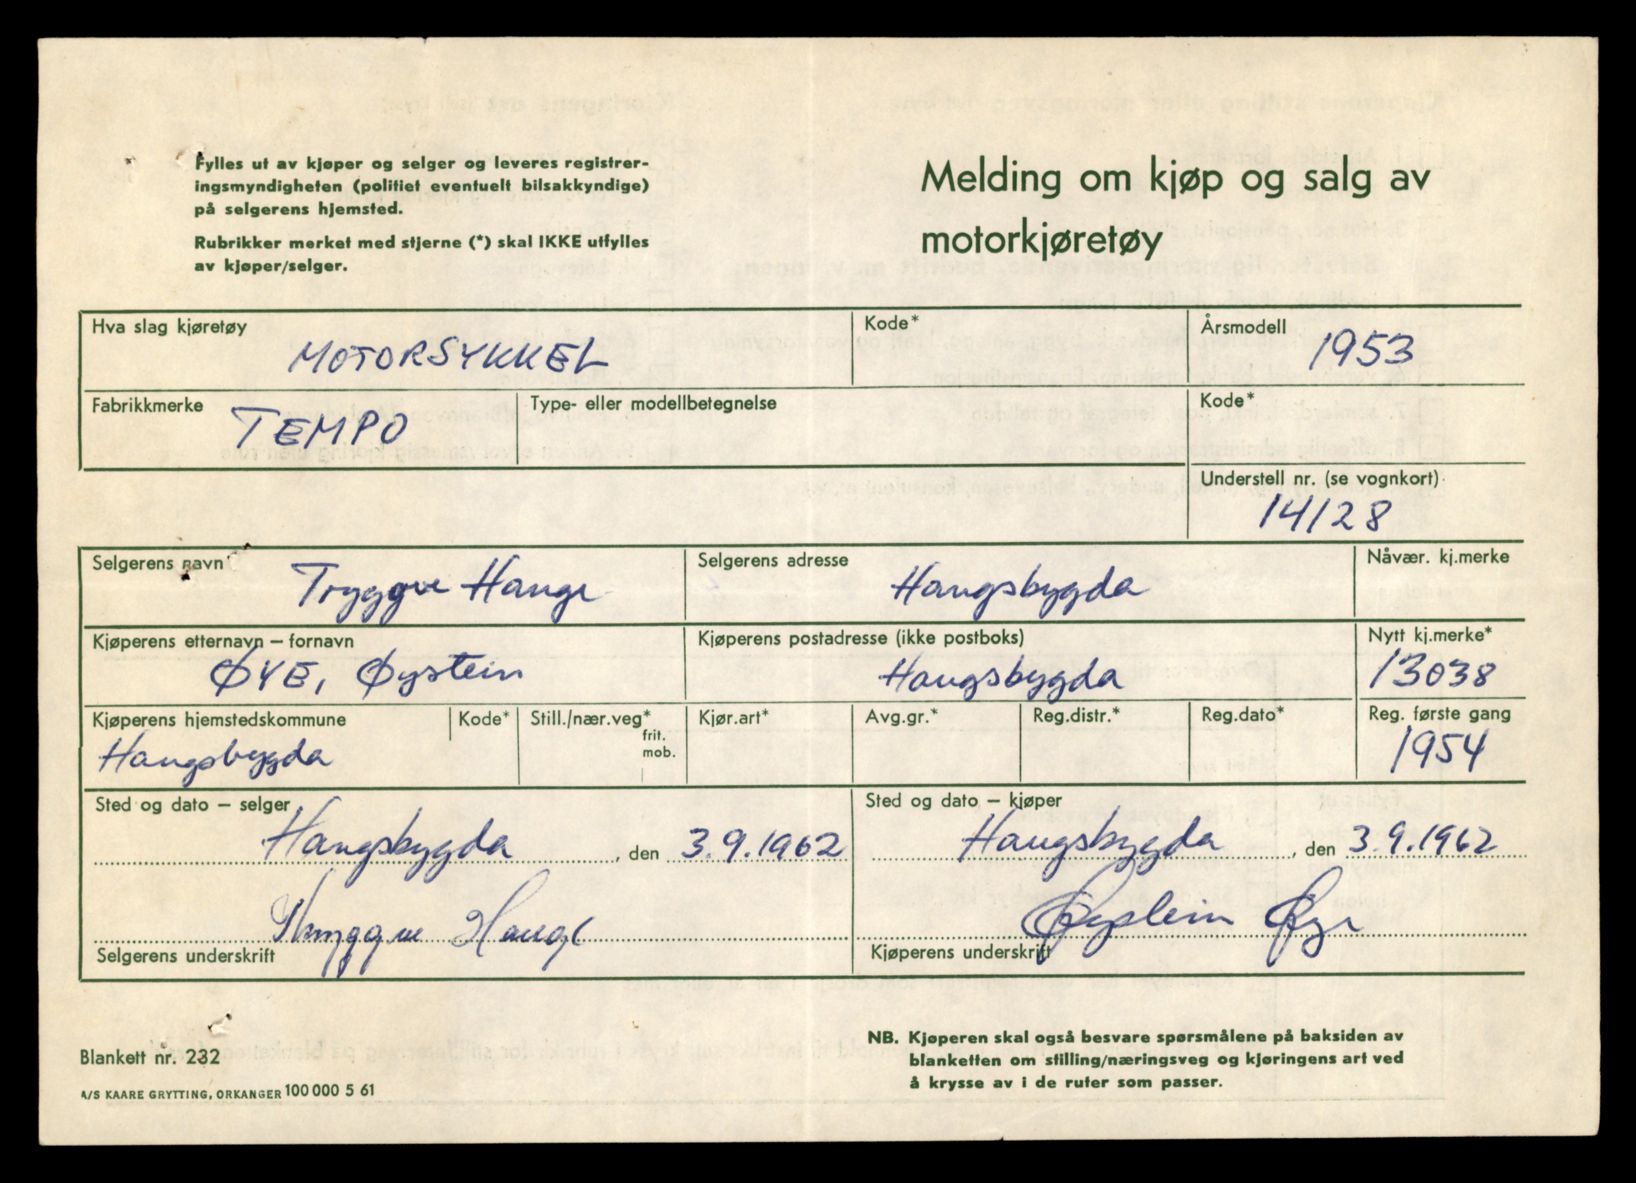 Fylles ut av kjøper og selger og leveres registrer-
ingsmyndigheten (politiet eventuelt bilsakkyndige)
på selgerens hjemsted.
Rubrikker merket med stjerne (*) skal IKKE utfylles
av kjøper/selger.
Melding om kjøp og salg av
motorkjøretøy
Hva slag kjøretøy
MOTORSYKKEL
Kode*
Årsmodell
1953
Fabrikkmerke
TEMPO
Type- eller modellbetegnelse
Kode*
Understell nr. (se vognkort)
14128
Selgerens navn
Tryggve Hauge
Selgerens adresse
Haugsbygda
Nåvær. kj.merke
Kjøperens etternavn – fornavn
ØYE, Øystein
Kjøperens postadresse (ikke postboks)
Haugsbygda
Nytt kj.merke*
13038
Kjøperens hjemstedskommune
Haugsbygda
Kode*
Still./nær.veg*
frit.
mob.
Kjør.art*
Avg.gr.*
Reg.distr.*
Reg.dato*
Reg. første gang
1954
Sted og dato – selger
Haugsbygda, den 3.9.1962
Sted og dato – kjøper
Haugsbygda, den 3.9.1962
Tryggve Hauge
Selgerens underskrift
Øystein Øye
Kjøperens underskrift
Blankett nr. 232
A/S KAARE GRYTTING, ORKANGER 100 000 5 61
NB. Kjøperen skal også besvare spørsmålene på baksiden av
blanketten om stilling/næringsveg og kjøringens art ved
å krysse av i de ruter som passer.